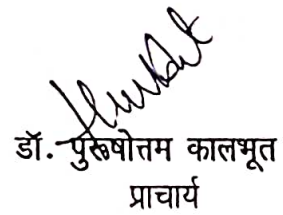 डॉ. पुरूषोत्तम कालभूत
प्राचार्य